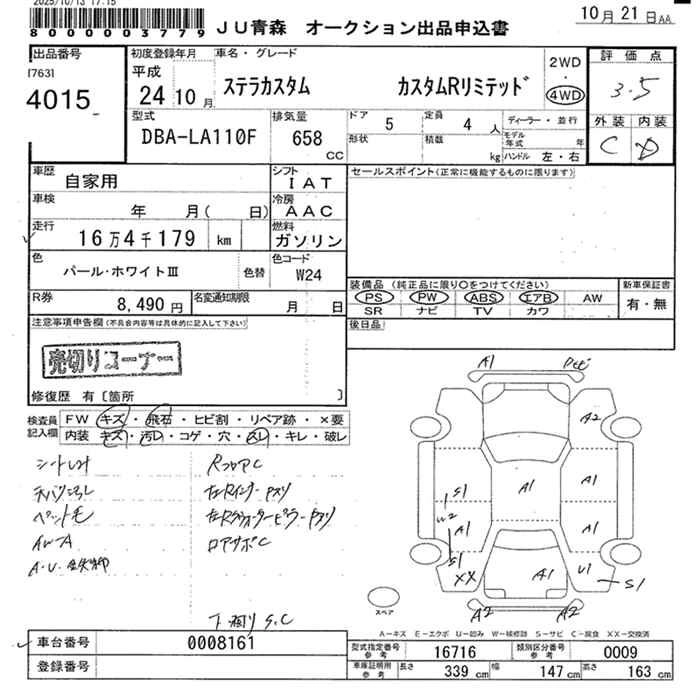 2025/10/13 17:15
8000000003779
JU青森 オークション出品申込書
10月21日AA
出品番号
17631
4015
初度登録年月
平成
24 10月
車名・グレード
ステラカスタム カスタムRリミテッド
2WD
・
4WD
評価点
3.5
外装 内装
C D
型式
DBA-LA110F
排気量
658
CC
ドア 5
定員 4 人
形状
積載
kg
ディーラー・並行
モデル年式 年
ハンドル 左・右
車歴
自家用
シフト
IAT
車検
年 月( 日)
冷房
AAC
走行
16万4千179 km
燃料
ガソリン
色
パール・ホワイトⅢ
色替
色コード
W24
R券
8,490円
名変通知期限
月 日
セールスポイント(正常に機能するものに限ります)
装備品(純正品に限り○をつけてください)
PS PW ABS エアB AW
SR ナビ TV カワ
新車保証書
有・無
後日品
注意事項申告欄(不具合内容等は具体的に記入して下さい)
売切りコーナー
修復歴 有〔箇所 〕
検査員記入欄
FW キズ・飛石・ヒビ割・リペア跡・×要
内装 キズ・汚レ・コゲ・穴・スレ・キレ・破レ
シートレオ
RフロアC
ペット毛
AW-A
ロアサポC
下廻りS.C
A1
A2
A1
A1
A1
S1
W2
A1
S1
XX
A1
U1
S1
A2
A2
スペア
A-キズ E-エクボ U-凹み W-補修跡 S-サビ C-腐食 XX-交換済
車台番号
0008161
登録番号
型式指定番号
参考
16716
類別区分番号
参考
0009
車庫証明用
参考
長さ 339 cm
幅 147 cm
高さ 163 cm